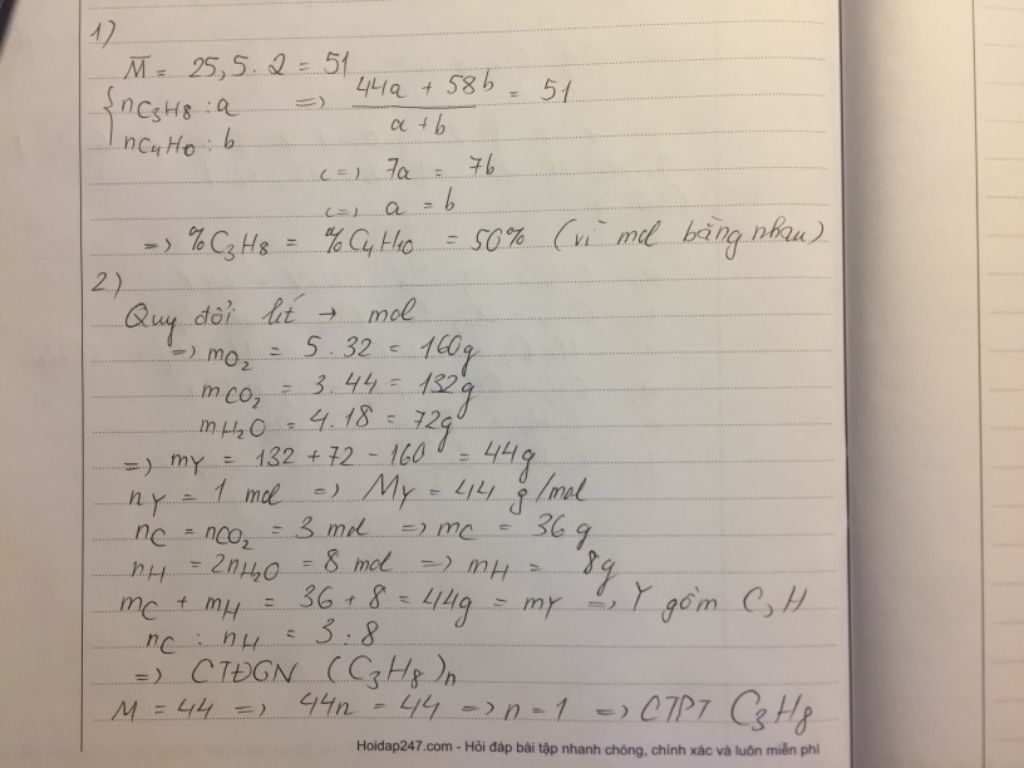 1)
M̄ = 25,5 . 2 = 51
{ nC3H8 : a => (44a + 58b)/(a + b) = 51
nC4H10 : b
<=> 7a = 7b
<=> a = b
=> %C3H8 = %C4H10 = 50% (vì mol bằng nhau)
2)
Quy đổi lít → mol
=> mO2 = 5 . 32 = 160g
mCO2 = 3 . 44 = 132g
mH2O = 4 . 18 = 72g
=> mY = 132 + 72 - 160 = 44g
nY = 1 mol => MY = 44 g/mol
nC = nCO2 = 3 mol => mC = 36 g
nH = 2nH2O = 8 mol => mH = 8g
mC + mH = 36 + 8 = 44g = mY => Y gồm C, H
nC : nH = 3 : 8
=> CTĐGN (C3H8)n
M = 44 => 44n = 44 => n = 1 => CTPT C3H8
Hoidap247.com - Hỏi đáp bài tập nhanh chóng, chính xác và luôn miễn phí